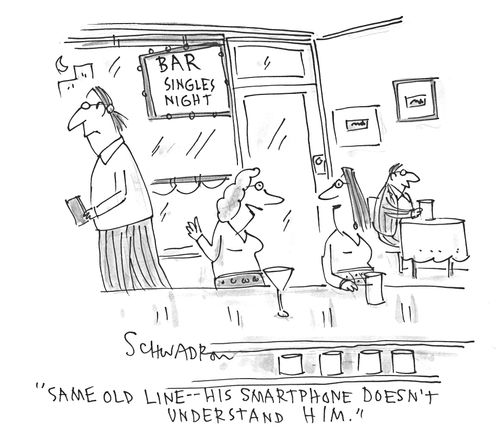 BAR
SINGLES
NIGHT
SCHWADRON
"SAME OLD LINE--HIS SMARTPHONE DOESN'T
UNDERSTAND HIM."